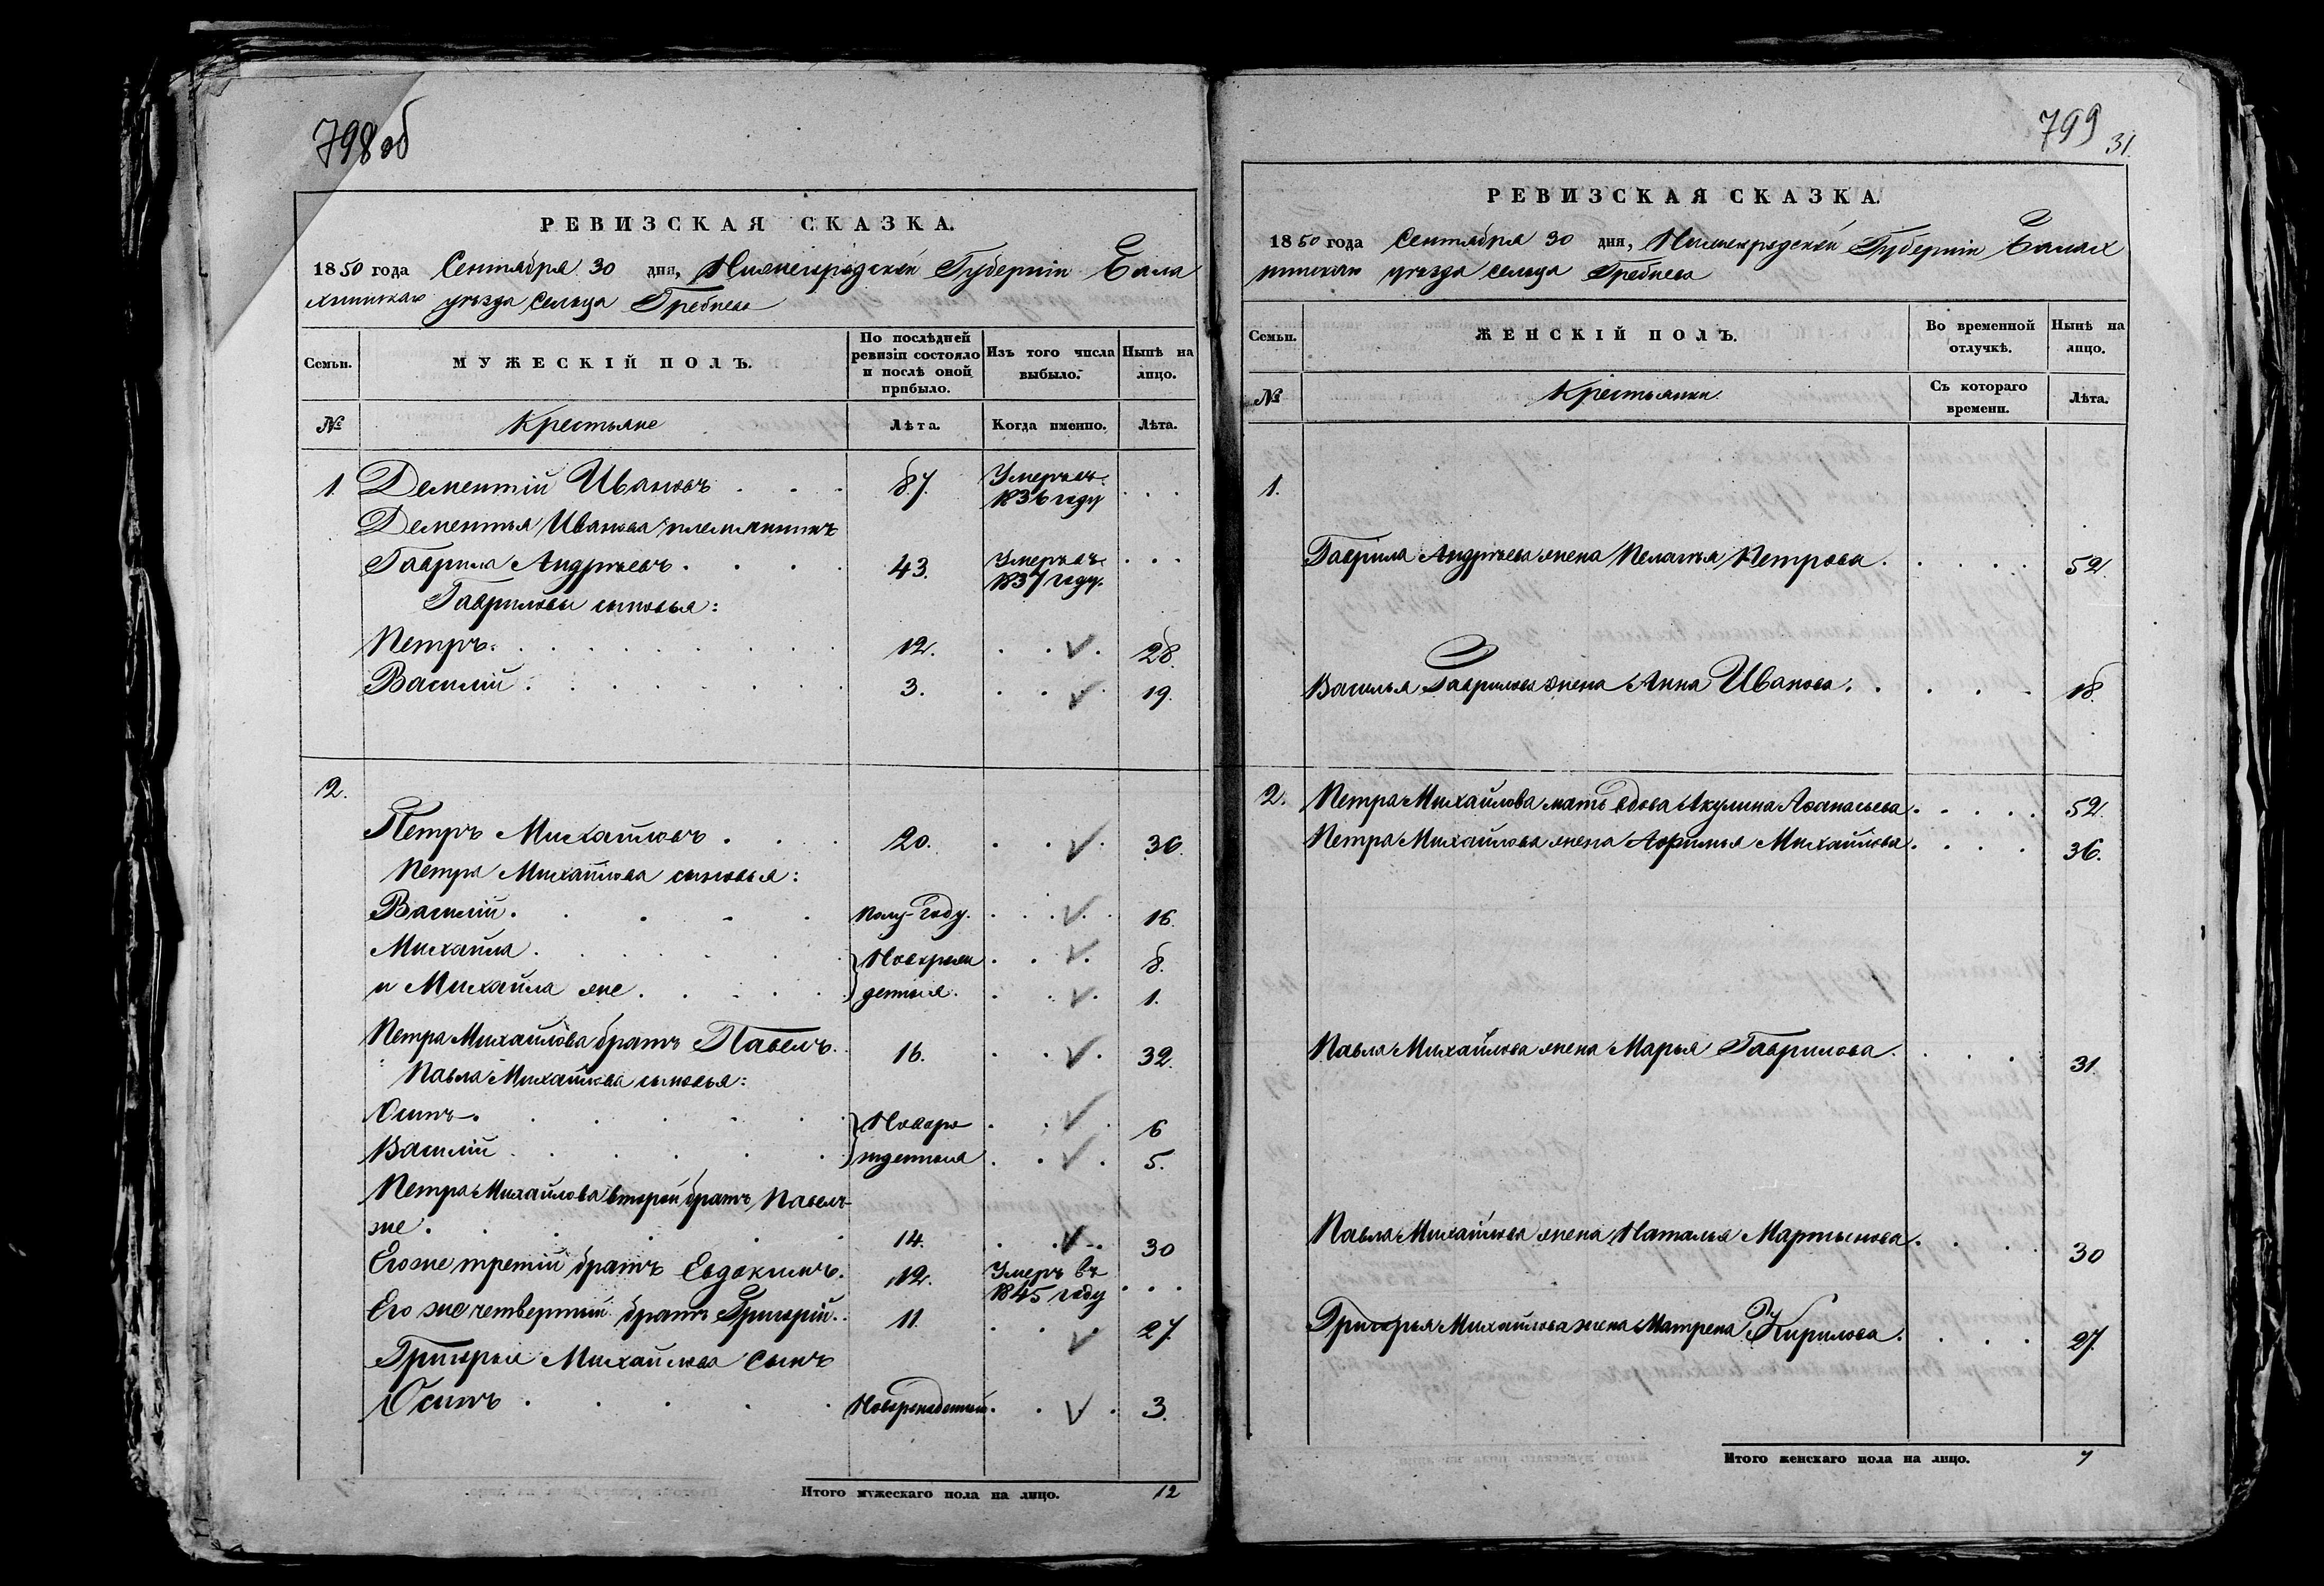 798 об
РЕВИЗСКАЯ СКАЗКА.
1850 года Сентября 30 дня, Нижегородской Губернiи Бала
хнинскаго уѣзда сельца Гребнева
Семьи. МУЖЕСКIЙ ПОЛЪ. По послѣдней ревизiи состояло и послѣ оной прибыло. Изъ того числа выбыло. Нынѣ на лицо.
№ Крестьяне Лѣта. Когда именно. Лѣта.
1. Дементiй Ивановъ . . . 87. Умеръ въ 1836 году . . .
Дементья Иванова племянникъ
Гаврила Андрѣевъ . . . . 43. Умеръ въ 1837 году. . . .
Гавриловы сыновья:
Петръ. . . . . . . . . 12. . . V . 28.
Василiй . . . . . . . . 3. . . V . 19.
2.
Петръ Михайловъ . . . 20. . . V . 36.
Петра Михайлова сыновья:
Василiй . . . . . полу-году. . . V . 16.
Михайла . . . . . . } Новорож . . V . 8.
и Михайла же . . . . . } денныя . . . V . 1.
Петра Михайлова братъ Павелъ. 16. . . V . 32.
Павла Михайлова сыновья:
Осипъ . . . . . . . } Новоро . . V . 6
Василiй . . . . . . } жденныя . . V . 5.
Петра Михайлова второй братъ Павелъ
же . . . . . 14. . . V . . 30
Его же третiй братъ Евдокимъ. 12. Умеръ въ 1845 году . . .
Его же четвертый братъ Григорiй. . 11. . . V 27.
Григорья Михайлова сынъ
Осипъ . . . . . Новорожденный . . V . 3.
Итого мужескаго пола на лицо. 12
799
31.
РЕВИЗСКАЯ СКАЗКА.
1850 года Сентября 30 дня, Нижегородской Губернiи Балах
нинскаго уѣзда сельца Гребнева
Семьи. ЖЕНСКIЙ ПОЛЪ. Во временной отлучкѣ. Нынѣ на лицо.
№ Крестьянки. Съ котораго времени. Лѣта.
1.
Гаврила Андрѣева жена Пелагья Петрова . . . . . 52.
Василья Гаврилова жена Анна Иванова . . . . . 18.
2. Петра Михайлова мать вдова Акулина Аѳанасьева . . . . . 52.
Петра Михайлова жена Афимья Михайлова . . . . 36.
Павла Михайлова жена Марья Гаврилова . . . . 31.
Павла Михайлова жена Наталья Мартынова . . . . 30
Григорья Михайлова жена Матрена Кирилова . . . . 27.
Итого женскаго пола на лицо. 7